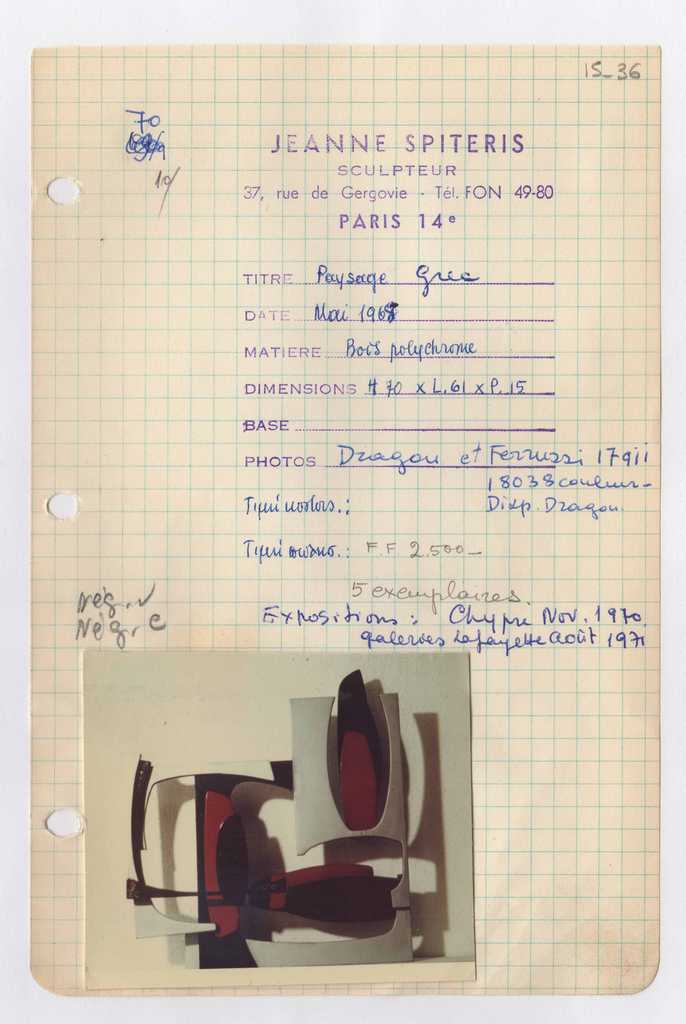 15-36
70
10/
JEANNE SPITERIS
SCULPTEUR
37, rue de Gergovie - Tél. FON 49-80
PARIS 14e
TITRE Paysage Grec
DATE Mai 196
MATIERE Bois polychrome
DIMENSIONS H 70 x L. 61 x P. 15
BASE
PHOTOS Dragon et Ferruzzi 17911
18038 couleur-
Diap. Dragon
Τιμή κόστους.:
Τιμή .: F.F 2.500-
5 exemplaires.
nég. v
Nég. C
Expositions: Chypre Nov. 1970
galeries Lafayette Août 1971